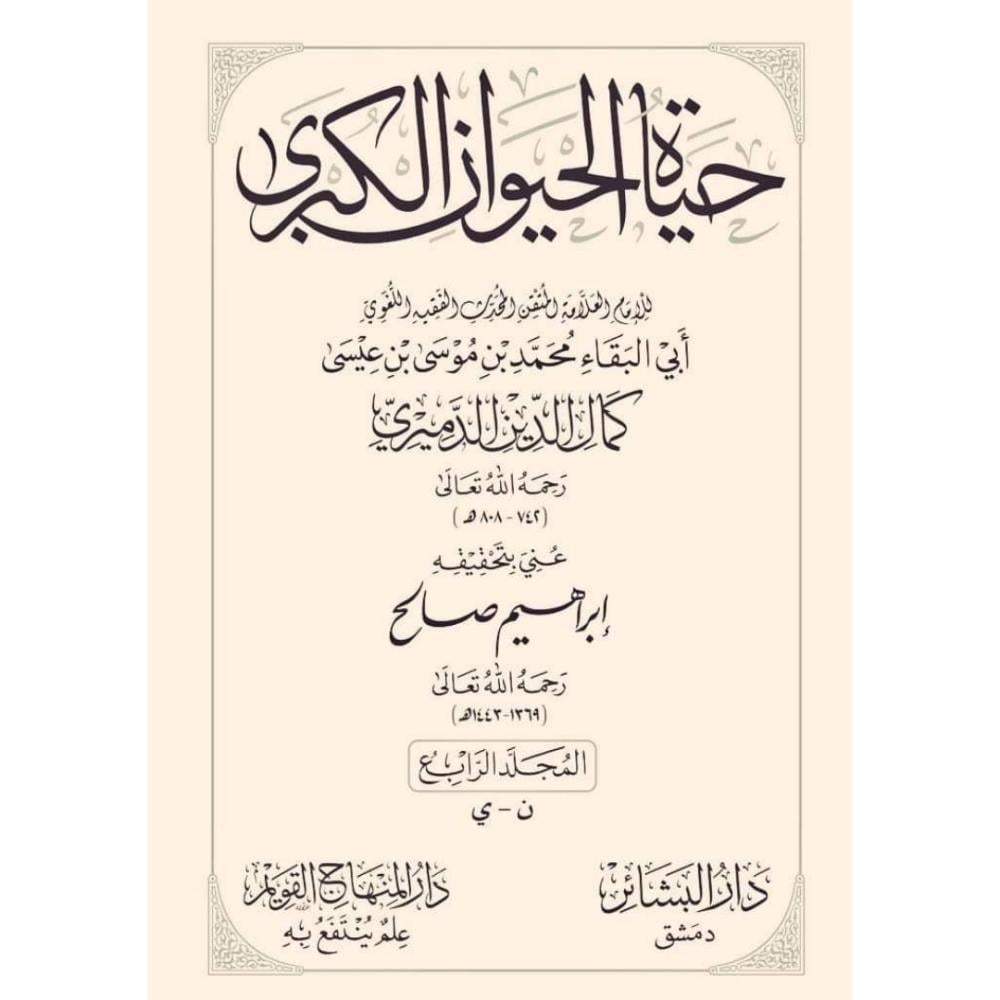 حَيَاةُ الحَيَوَانِ الكُبْرَى
لِلْإِمَامِ العَلَّامَةِ المُتْقِنِ المُحَدِّثِ الفَقِيهِ اللُّغَوِيِّ
أَبِي البَقَاءِ مُحَمَّدِ بْنِ مُوسَى بْنِ عِيسَى
كَمَالِ الدِّينِ الدَّمِيرِيِّ
رَحِمَهُ اللهُ تَعَالَى
(٧٤٢ - ٨٠٨ هـ)
عُنِيَ بِتَحْقِيقِهِ
إبراهيم صالح
رَحِمَهُ اللهُ تَعَالَى
(١٣٦٩-١٤٤٣هـ)
المُجَلَّد الرَّابِعُ
ن - ي
دَارُ البَشَائِر
دمَشق
دَارُ المِنْهَاجِ القَوِيمِ
عِلمٌ يُنْتَفَعُ بِهِ